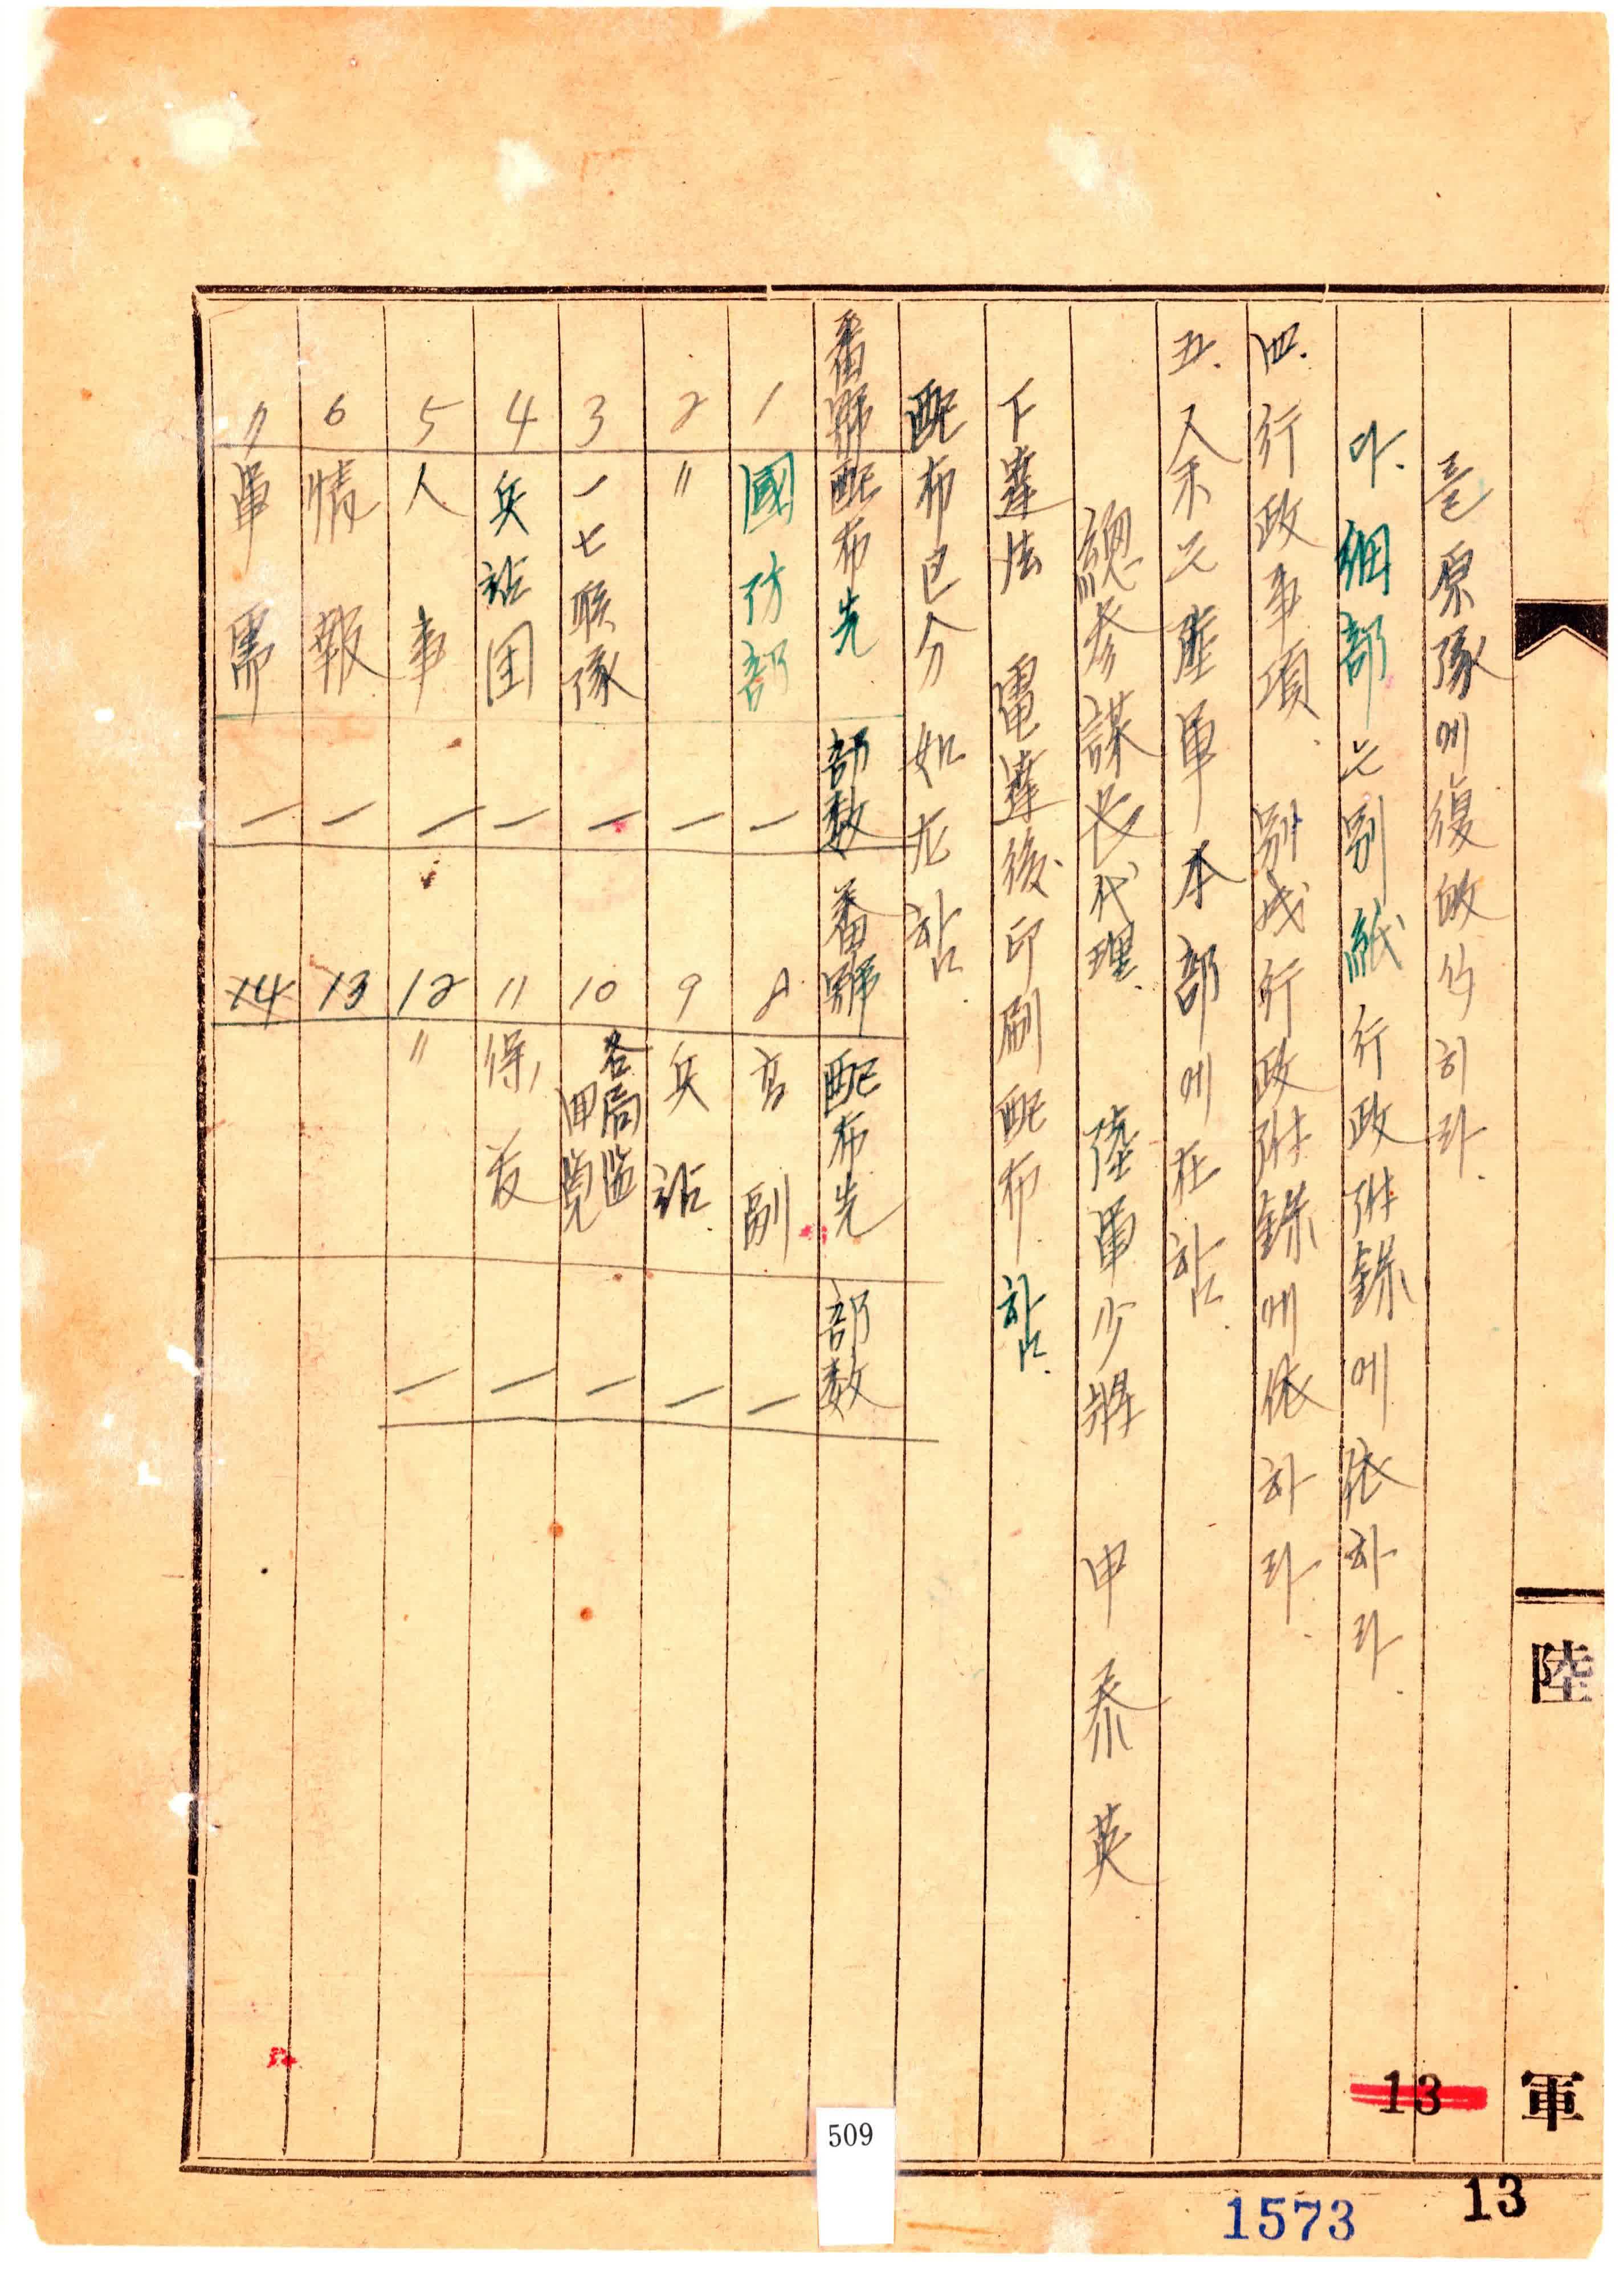 를 原隊에 復歸 식히라.
마. 細部는 別紙 行政附錄에 依하라.
四. 行政事項. 別減行政附錄에 依하라.
五. 余는 陸軍本部에 在함.
總參謀長代理. 陸軍少將 申泰英
下達法 電達後 印刷配布함.
配布區分 如左함.
番號 配布先 部数 番號 配布先 部数
1 國防部 一 8 高副 一
2 〃 一 9 兵站. 一
3 一七聯隊 一 10 各局監回覽 一
4 兵站团 一 11 保发 一
5 人事 一 12 〃 一
6 情報 一 13
7 軍需 一 14
陸軍
13
509
1573
13